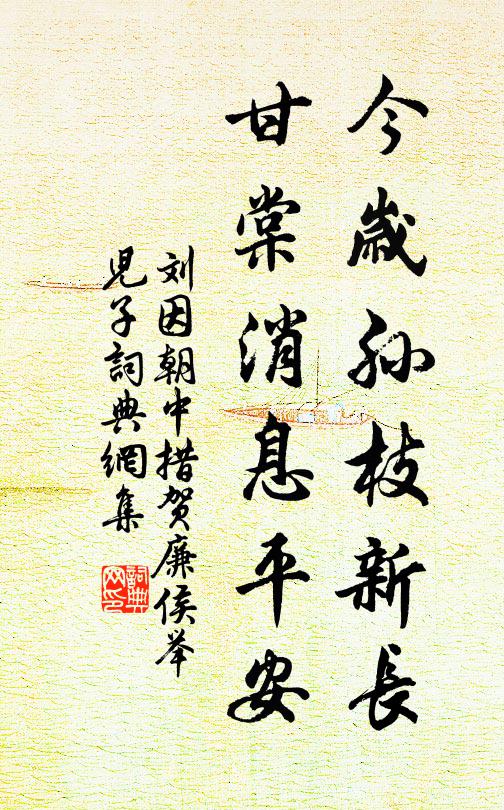 今歲孙枝新長
甘棠消息平安
刘因朝中措贺廉侯举
児子詞典網集
詞典網印